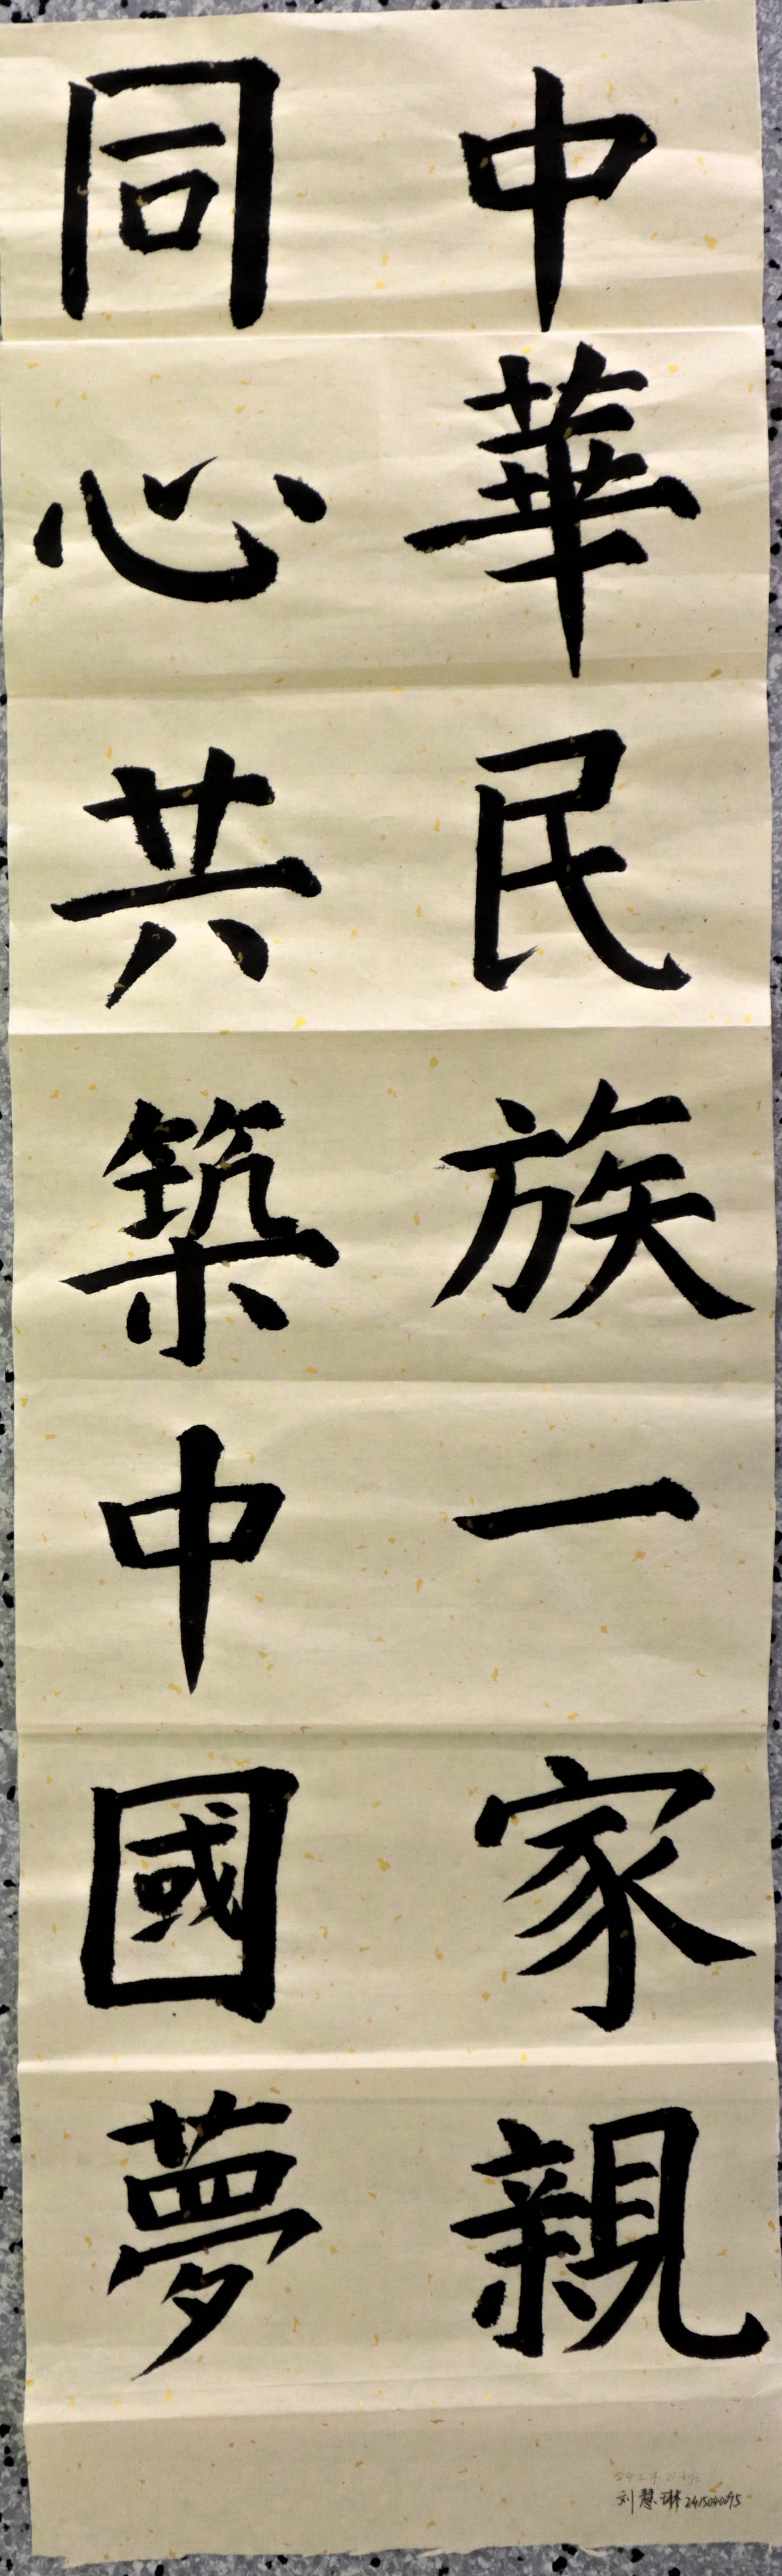 中華民族一家親
同心共築中國夢
刘慧琳 2415040095